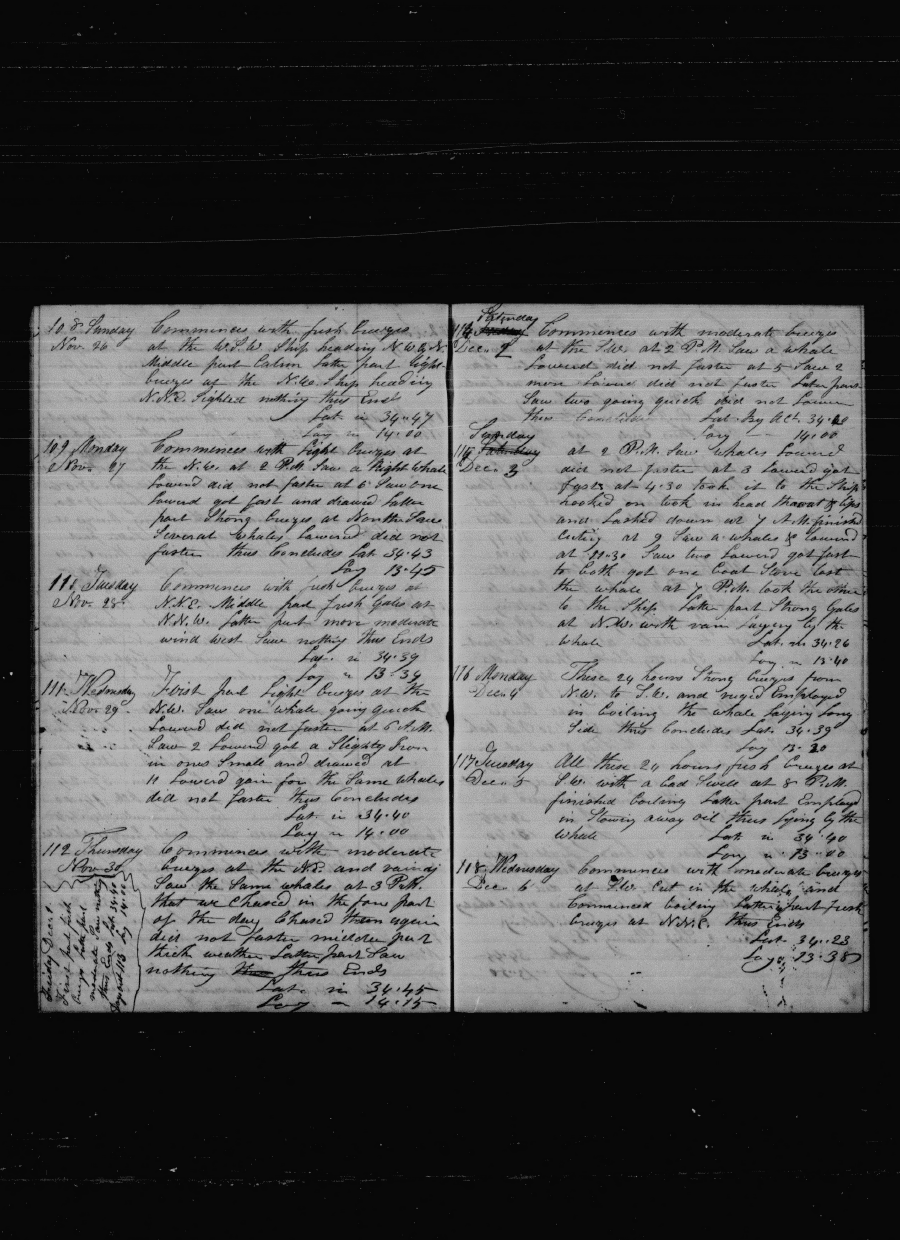 108 Sunday Commences with fresh breezes
Nov. 26 at the W.S.W. Ship heading N.W. by N.
Middle part Calm latter part light
breezes up the N.W. Ship heading
N.N.E. Sighted nothing thus Ends
Lat. in 34.47
Long in 14.00
109 Monday Commences with light breezes at
Nov. 27 the N.W. at 2 P.M. Saw a Right Whale
Lowered did not fasten at 6 Saw one
lowerd got fast and drawed latter
part Strong breezes at North Saw
Several Whales Lowered did not
fasten thus Concludes Lat 34.43
Long 13.45
110 Tuesday Commences with fresh breezes at
Nov. 28 N.N.E. Middle part fresh Gales at
N.N.W. Latter part more moderate
wind West Saw nothing thus Ends
Lat. in 34.39
Long " 13.39
111 Wednesday First part Light breezes at the
Nov. 29 N.W. Saw one whale going quick
Lowered did not fasten at 6 A.M.
Saw 2 Lowerd got a Slightly Iron
in ones Small and drawed at
11 Lowerd gain for the Same Whales
did not faster thus Concludes
Lat in 34.40
Long in 14.00
112 Thursday Commences with moderate
Nov. 30 breezes at the and
Saw the Same whales at 3 P.M.
that we Chased in the fore part
of the day Chased them again
did not fasten middle part
thick weather Latter part Saw
nothing thus Ends
Lat. in 34.45
Long " 14.15
Friday Dec. 1
First part fresh
breezes latter part
moderate Saw nothing
thus Ends Lat 34.40
Days out 113 Long 14.10
Saturday
114 Sunday Commences with moderate breezes
Dec. 2 at the S.W. at 2 P.M. Saw a whale
Lowered did not fasten at 5 Saw 2
more Lowerd did not fasten Later part
Saw two going quick did not Lower
thus Conclude Lat. By Act. 34.20
Long 14.00
Sunday
115 Saturday at 2 P.M. Saw Whales Lowerd
Dec. 3 did not fasten at 3 Lowerd got
fast at 4.30 took it to the Ship
hooked on took in head throat & lips
and Lashed down at 7 A.M. finished
Cuting at 9 Saw a whales & Lowered
at 11.30 Saw two Lowerd got fast
to both got one boat Stove lost
the whale at 7 P.M. took the other
to the Ship Latter part Strong Gales
at N.W. with rain Laying by the
Whale Lat. in 34.26
Long in 13.40
116 Monday These 24 hours Strong breezes from
Dec. 4 N.W. to S.W. and ruged Employed
in Boiling the whale laying Long
Side thus Concludes Lat. 34.39
Long 13.20
117 Tuesday All these 24 hours fresh breezes at
Dec. 5 S.W. with a bad Swell at 8 P.M.
finished boiling Latter part Employd
in Stowing away oil thus lying by the
Whale Lat in 34.40
Long " 13.00
118 Wednesday Commences with moderate breezes
Dec. 6 at S.W. Cut in the whale and
Commenced Boiling Latter part fresh
breezes at N.N.E. thus Ends
Lat. 34.23
Long. 13.38